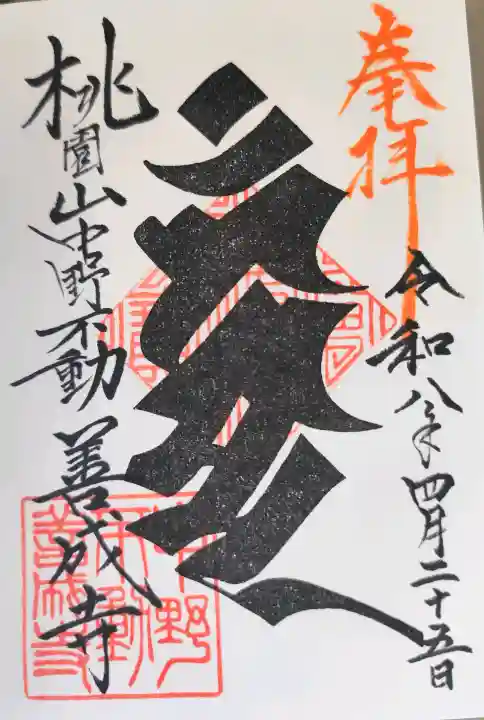 奉拝
令和八年四月二十五日
桃園山中野不動 善成寺